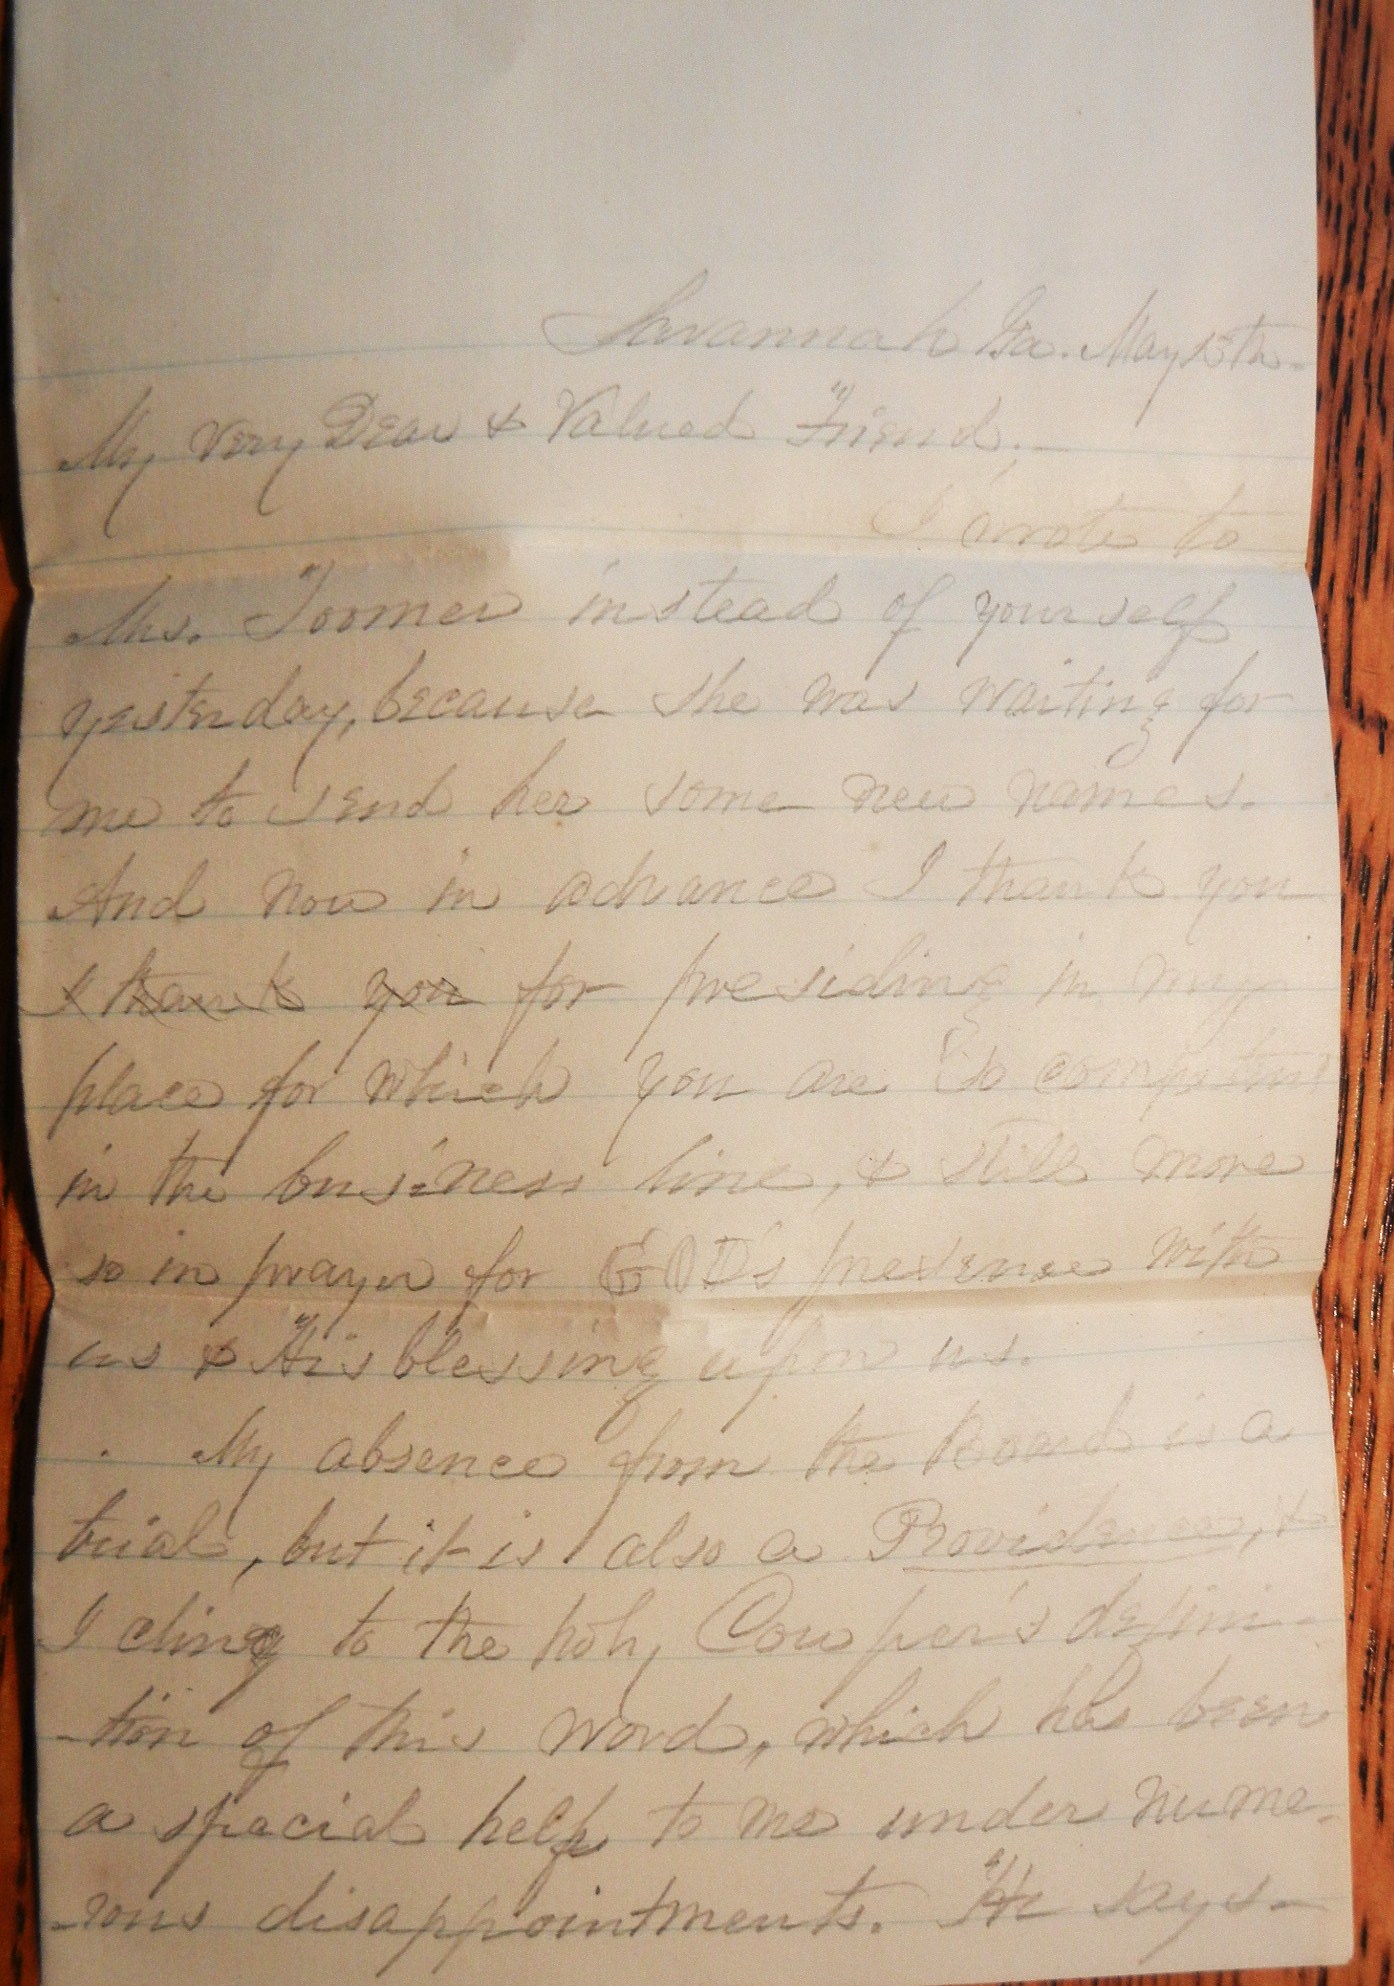 Savannah Ga. May 13th.
My Very Dear & Valued Friend;—
I wrote to
Mrs. Toomer instead of yourself
yesterday, because she was waiting for
me to send her some new names.
And now in advance I thank you
I thank you for presiding in my
place for which you are so competent
in the business line, & still more
so in prayer for GOD's presence with
us & His blessing upon us.
My absence from the Board is a
trial, but it is also a Providence, &
I cling to the holy Cowper's defini-
-tion of this word, which has been
a special help to me under nume-
-rous disappointments. He says—